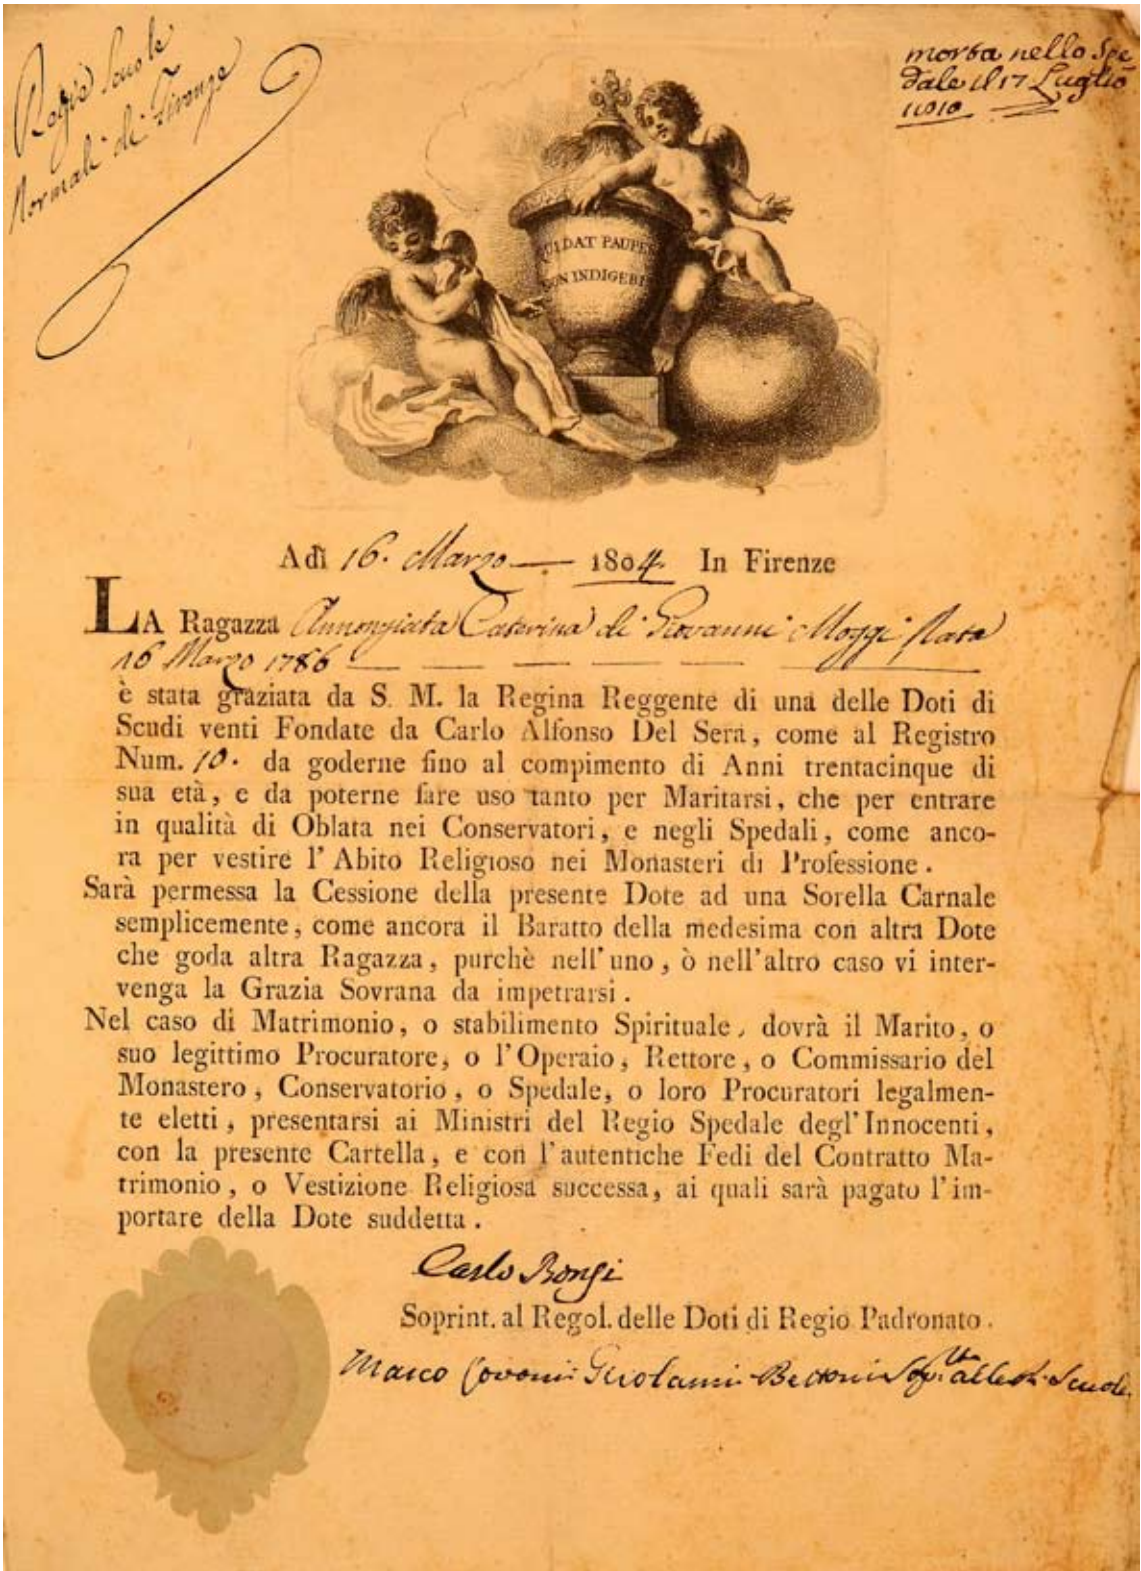 Regie Scuole
Normali di Firenze
morta nello Spe
dale il 17 Luglio
1810
QUI DAT PAUPE
NON INDIGEBI
Adì 16. Marzo 1804. In Firenze
LA Ragazza Annonziata Caterina di Giovanni Moggi Nata
16 Marzo 1786
è stata graziata da S. M. la Regina Reggente di una delle Doti di
Scudi venti Fondate da Carlo Alfonso Del Sera, come al Registro
Num. 10. da goderne fino al compimento di Anni trentacinque di
sua età, e da poterne fare uso tanto per Maritarsi, che per entrare
in qualità di Oblata nei Conservatori, e negli Spedali, come anco-
ra per vestire l'Abito Religioso nei Monasteri di Professione.
Sarà permessa la Cessione della presente Dote ad una Sorella Carnale
semplicemente, come ancora il Baratto della medesima con altra Dote
che goda altra Ragazza, purchè nell'uno, ò nell'altro caso vi inter-
venga la Grazia Sovrana da impetrarsi.
Nel caso di Matrimonio, o stabilimento Spirituale, dovrà il Marito, o
suo legittimo Procuratore, o l'Operaio, Rettore, o Commissario del
Monastero, Conservatorio, o Spedale, o loro Procuratori legalmen-
te eletti, presentarsi ai Ministri del Regio Spedale degl'Innocenti,
con la presente Cartella, e con l'autentiche Fedi del Contratto Ma-
trimonio, o Vestizione Religiosa successa, ai quali sarà pagato l'im-
portare della Dote suddetta.
Carlo Bongi
Soprint. al Regol. delle Doti di Regio Padronato.
Marco Covoni Girolami Scuole